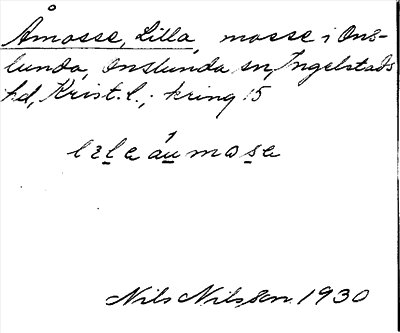 Åmosse, Lilla, mosse i Ons-
lunda, Onslunda sn, Ingelstads
hd, Krist. l.; kring 15
Nils Nilsson 1930